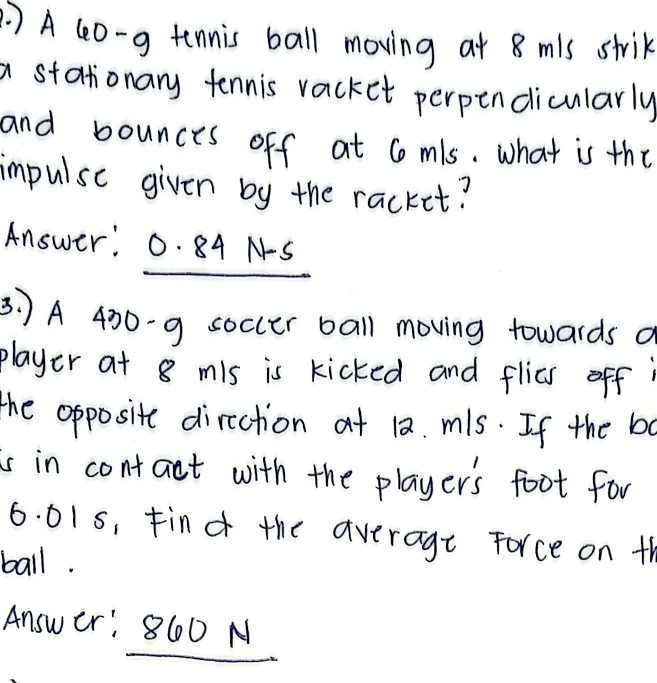 2.) A 60-g tennis ball moving at 8 m/s strik
a stationary tennis racket perpendicularly
and bounces off at 6 m/s. What is the
impulse given by the racket?
Answer: 0.84 N-s
3.) A 430-g soccer ball moving towards a
player at 8 m/s is kicked and flies off i
the opposite direction at 12 m/s. If the ba
is in contact with the player's foot for
0.01 s, Find the average Force on th
ball.
Answer: 860 N